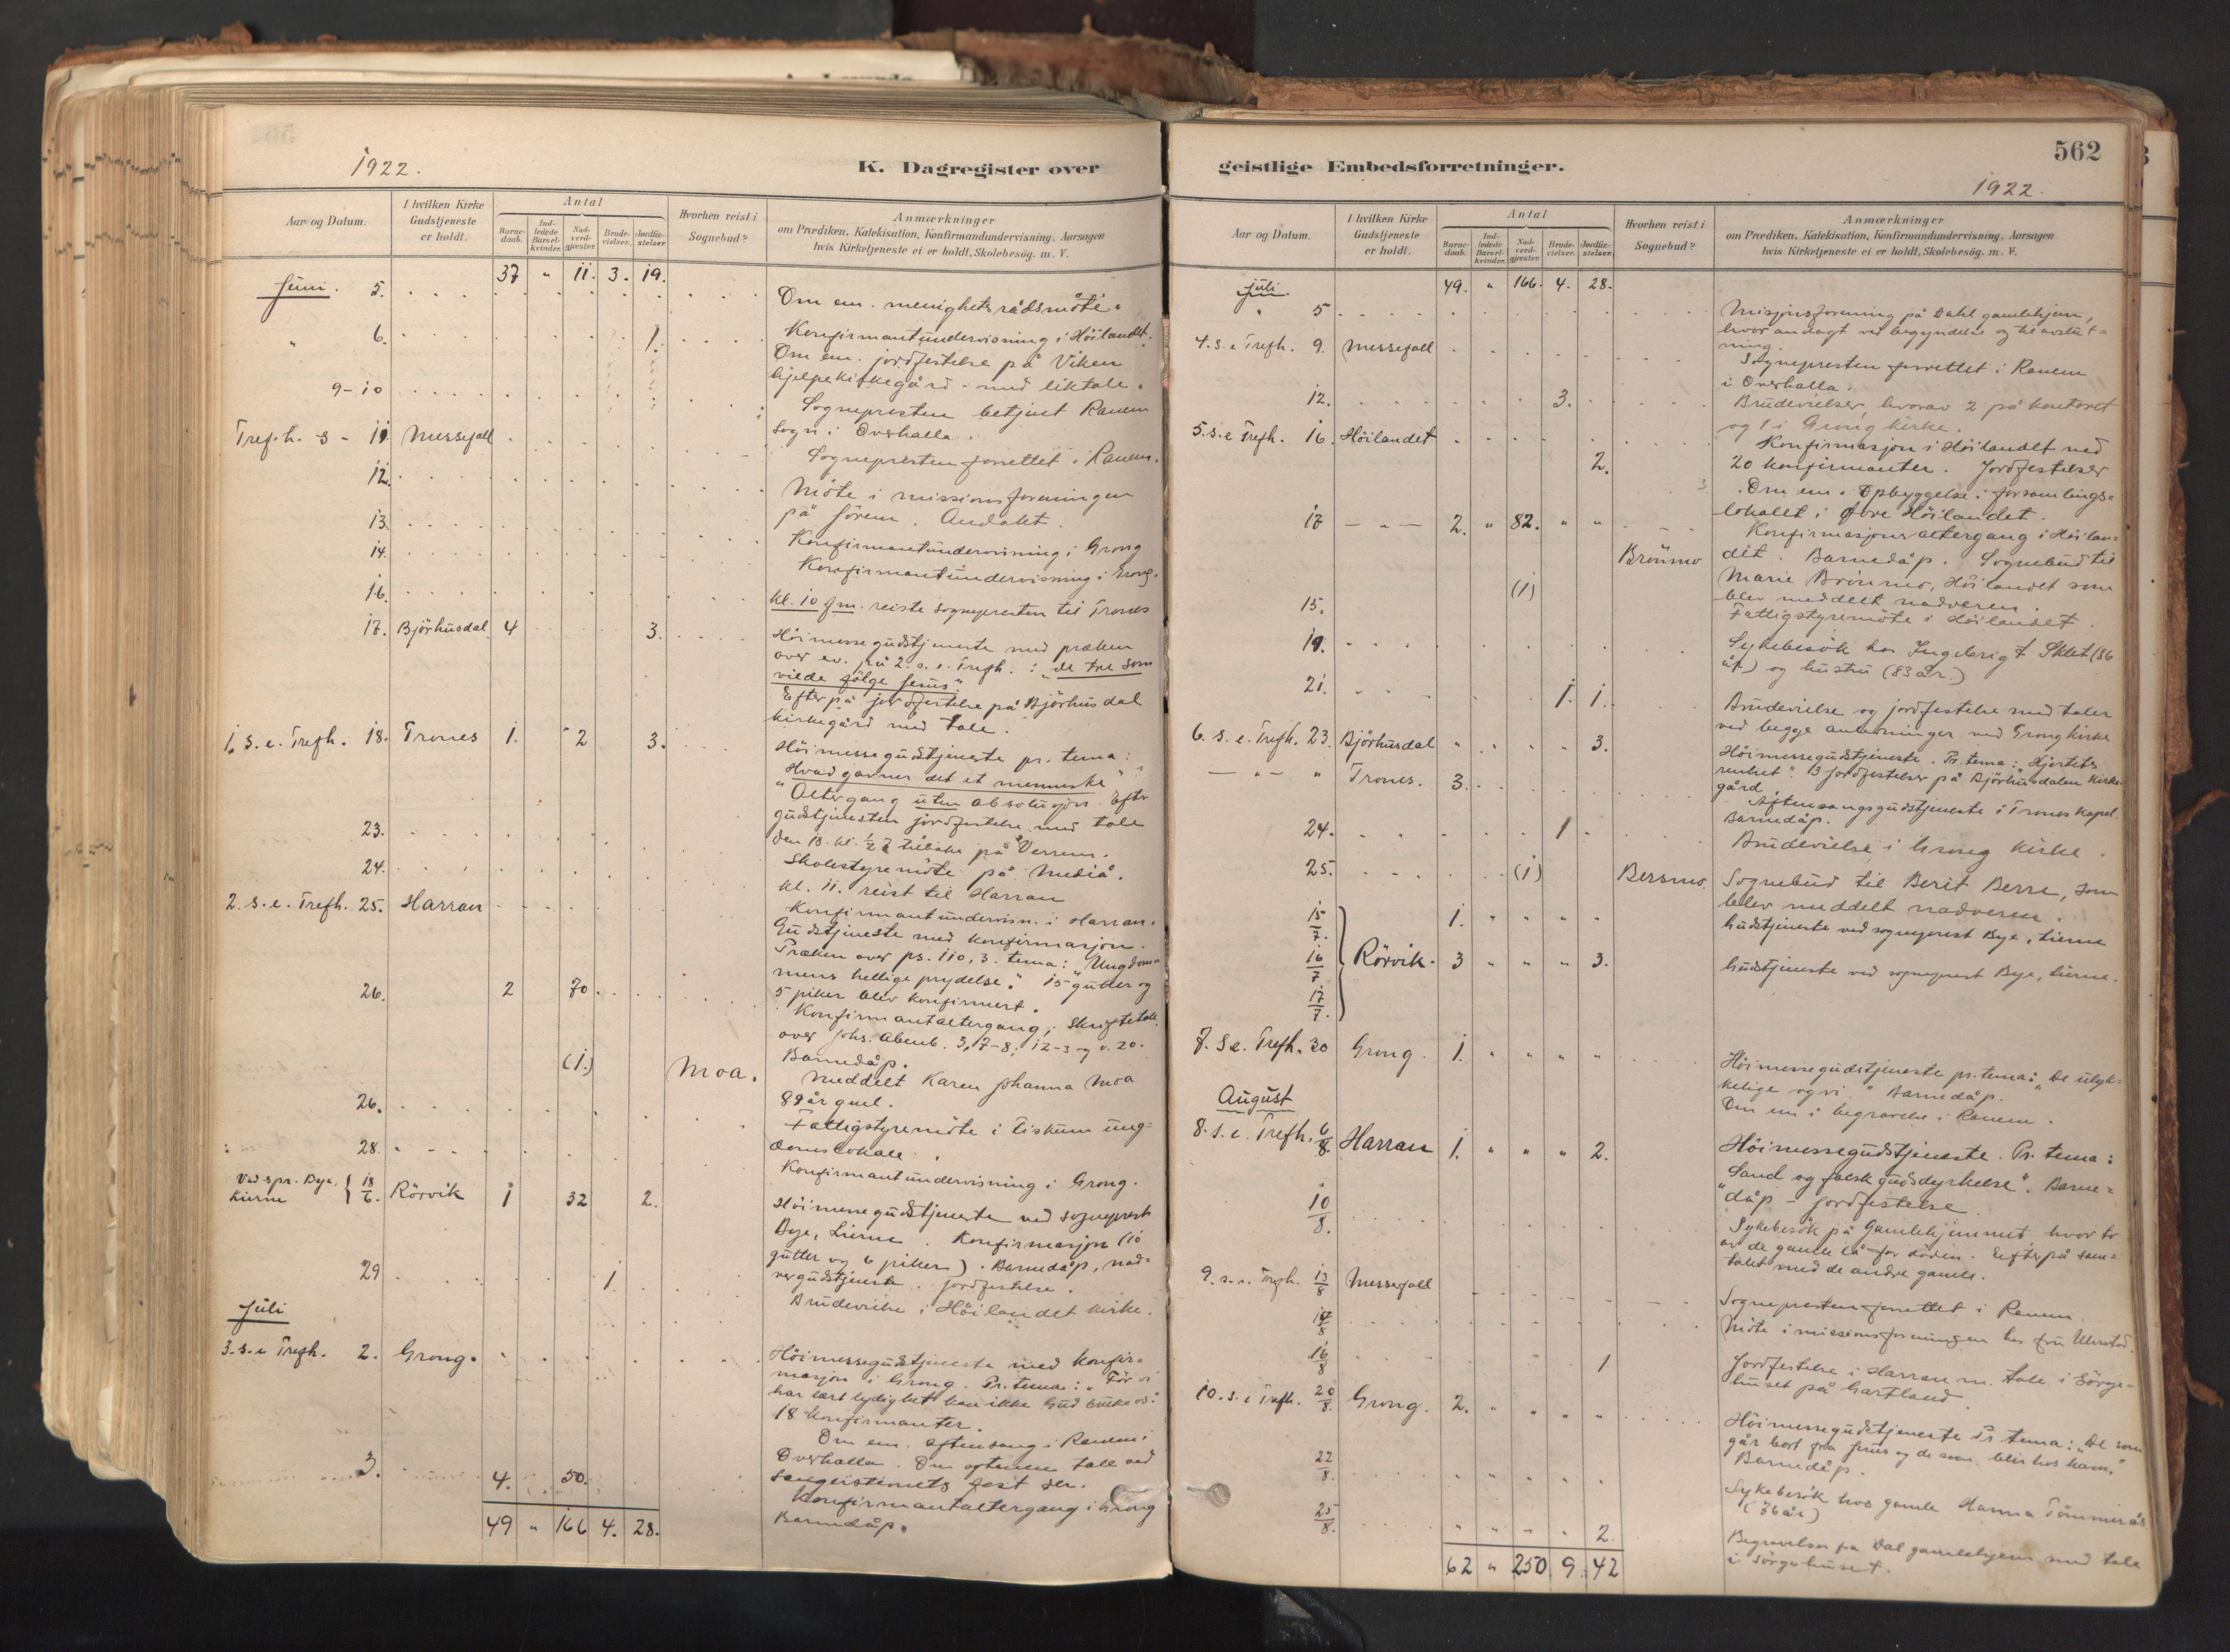 1922.
K. Dagregister over
Aar og Datum.
I hvilken Kirke Gudstjeneste er holdt.
Antal
Barne-daab.
Ind-ledede Barsel-kvinder.
Nad-verd-gjester.
Brude-vielser.
Jordfæ-stelser
Hvorhen reist i Sognebud?
Anmærkninger
om Prædiken, Katekisation, Konfirmandundervisning, Aarsagen
hvis Kirketjeneste ei er holdt, Skolebesög. m. V.
37 " 11. 3. 19.
Juni. 5.
Om em. menighetsrådsmöte.
" 6. 1.
Konfirmantundervisning i Höilandet.
Om em. jordfestelse på Viken
hjelpekirkegård - med liktale.
9-10
Sognepresten betjent Ranem
sogn i Overhalla.
Tref. h. s - 11. Messefall
Sognepresten forrettet i Ranem.
12.
Möte i missionsforeningen
på Jörem. Andakt.
13.
Konfirmantundervisning i Grong
14.
Konfirmantundervisning i Grong.
16.
kl. 10 fm. reiste sognepresten til Trones
17. Björhusdal 4 3.
Höimessegudstjeneste med præken
over ev. på 2. s. e. Trefh.: "de tre som
vilde fölge Jesus"
Efterpå jordfestelse på Björhusdal
kirkegård med tale.
1. s. e. Trefh. 18. Trones 1. " 2 3.
Höimessegudstjeneste pr. tema:
"Hvad gavner det et menneske"
Altergang uten absolusjon. Efter
gudstjenesten jordfestelse med tale
den 18. kl. 1/2 7 tilbake på Verrem.
23.
Skolestyremöte på Mediå.
24.
kl. 11. reist til Harran
Konfirmantundervisn. i Harran.
2. s. e. Trefh. 25. Harran
Gudstjeneste med konfirmasjon.
Præken over ps. 110, 3. tema: "Ungdom-
mens hellige prydelse". 15 gutter og
5 piker blev konfirmert.
26. 2 70.
Konfirmantaltergang; Skriftetale
over Johs. Abenb. 3, 7-8; 12-3 og v. 20.
Barnedåp.
(1.) Moa.
Meddelt Karen Johanna Moa
89 år gml.
26.
Fattigstyremöte i Fiskum ung-
domslokale.
28.
Konfirmantundervisning i Grong.
Ved spr. Bye, Lierne 18/6. Rörvik 1 32 2.
Höimessegudstjeneste ved sogneprest
Bye, Lierne. Konfirmasjon (10
gutter og 6 piker). Barnedåp, nad-
vergudstjeneste. Jordfestelse.
29 1.
Brudevielse i Höilandet kirke.
Juli
3. s. e Trefh. 2. Grong.
Höimessegudstjeneste med konfir-
masjon i Grong. Pr. tema: "För vi
har lært lydighet kan ikke Gud bruke os".
18 konfirmanter.
Om em. aftensang i Ranem i
Overhalla. Om aftenen tale ved
fest der.
3. 4. 50.
Konfirmantaltergang i Grong
Barnedåp.
49 " 166 4. 28.
562
geistlige Embedsforretninger.
1922.
Aar og Datum.
I hvilken Kirke Gudstjeneste er holdt.
Antal
Barne-daab.
Ind-ledede Barsel-kvinder.
Nad-verd-gjester.
Brude-vielser.
Jordfæ-stelser
Hvorhen reist i Sognebud?
Anmærkninger
om Prædiken, Katekisation, Konfirmandundervisning, Aarsagen
hvis Kirketjeneste ei er holdt, Skolebesög. m. V.
49. " 166. 4. 28.
Juli
" 5
Misjonsforening på Dahl gamlehjem,
hvor andagt ved begyndelse og til avslut-
ning.
4. s. e Trefh. 9. Messefall
Sognepresten forrettet i Ranem
i Overhalla.
12. 3.
Brudevielser, hvorav 2 på kontoret
og 1 i Grong kirke.
5. s. e Trefh. 16. Höilandet
2.
Konfirmasjon i Höilandet med
20 konfirmanter. Jordfestelser
Om em. Opbyggelse i forsamlings-
lokalet i Övre Höilandet.
17 — " — 2. " 82. " "
Konfirmasjonsaltergang i Höilan-
det. Barnedåp. Sognebud til
Brönmo
(1)
Marie Brönmo, Höilandet som
blev meddelt nadveren.
15.
Fattigstyremöte i Höilandet.
19.
Sykebesök hos Ingebrigt Sklet (86
år) og hustru (83 år.)
21. 1. 1.
Brudevielse og jordfestelse med taler
ved begge anledninger ved Grong kirke
6. s. e. Trefh. 23. Björhusdal " 3.
Höimessegudstjeneste. Pr. tema: "Hjertets
renhet". 3 jordfestelser på Björhusdalen kirke-
gård.
— " — " Trones. 3.
Aftensangsgudstjeneste i Trones kapel.
Barnedåp.
24. 1
Brudevielse i Grong kirke.
25. (1) Bersmo.
Sognebud til Berit Berre, som
blev meddelt nadveren.
15/7. 1. " " " "
Gudstjeneste ved sogneprest Bye, Lierne
16/7 Rörvik. 3 " " " 3.
Gudstjeneste ved sogneprest Bye, Lierne.
17/7.
7. s. e. Trefh. 30 Grong. 1. " " " "
Höimessegudstjeneste pr. tema: "De ulyk-
kelige og vi." Barnedåp.
Om em i begravelse i Ranem.
August
8. s. e. Trefh. 6/8. Harran 1. " " " 2.
Höimessegudstjeneste. Pr. tema:
"Sand og falsk gudsdyrkelse". Barne-
dåp - jordfestelse.
10/8.
Sykebesök på Gamlehjemmet hvor to
av de gamle lå for döden. Efterpå sam-
talet med de andre gamle.
9. s. e. Trefh. 13/8 Messefall
Sognepresten forrettet i Ranem.
14/8
Möte i missionsforeningen hos fru
16/8 1.
Jordfestelse i Harran m. tale i Sörge-
huset på Gartland.
10. s. e Trefh. 20/8. Grong. 2. " " " "
Höimessegudstjeneste Pr. tema: "De som
går bort fra Jesus og de som blir hos ham."
Barnedåp.
22/8.
Sykebesök hos gamle Hanna Tömmerås
(76 år)
25/8. " " " " 2.
Begravelser fra Dal gamlehjem med tale
i Sörgehuset.
62 " 250 9. 42